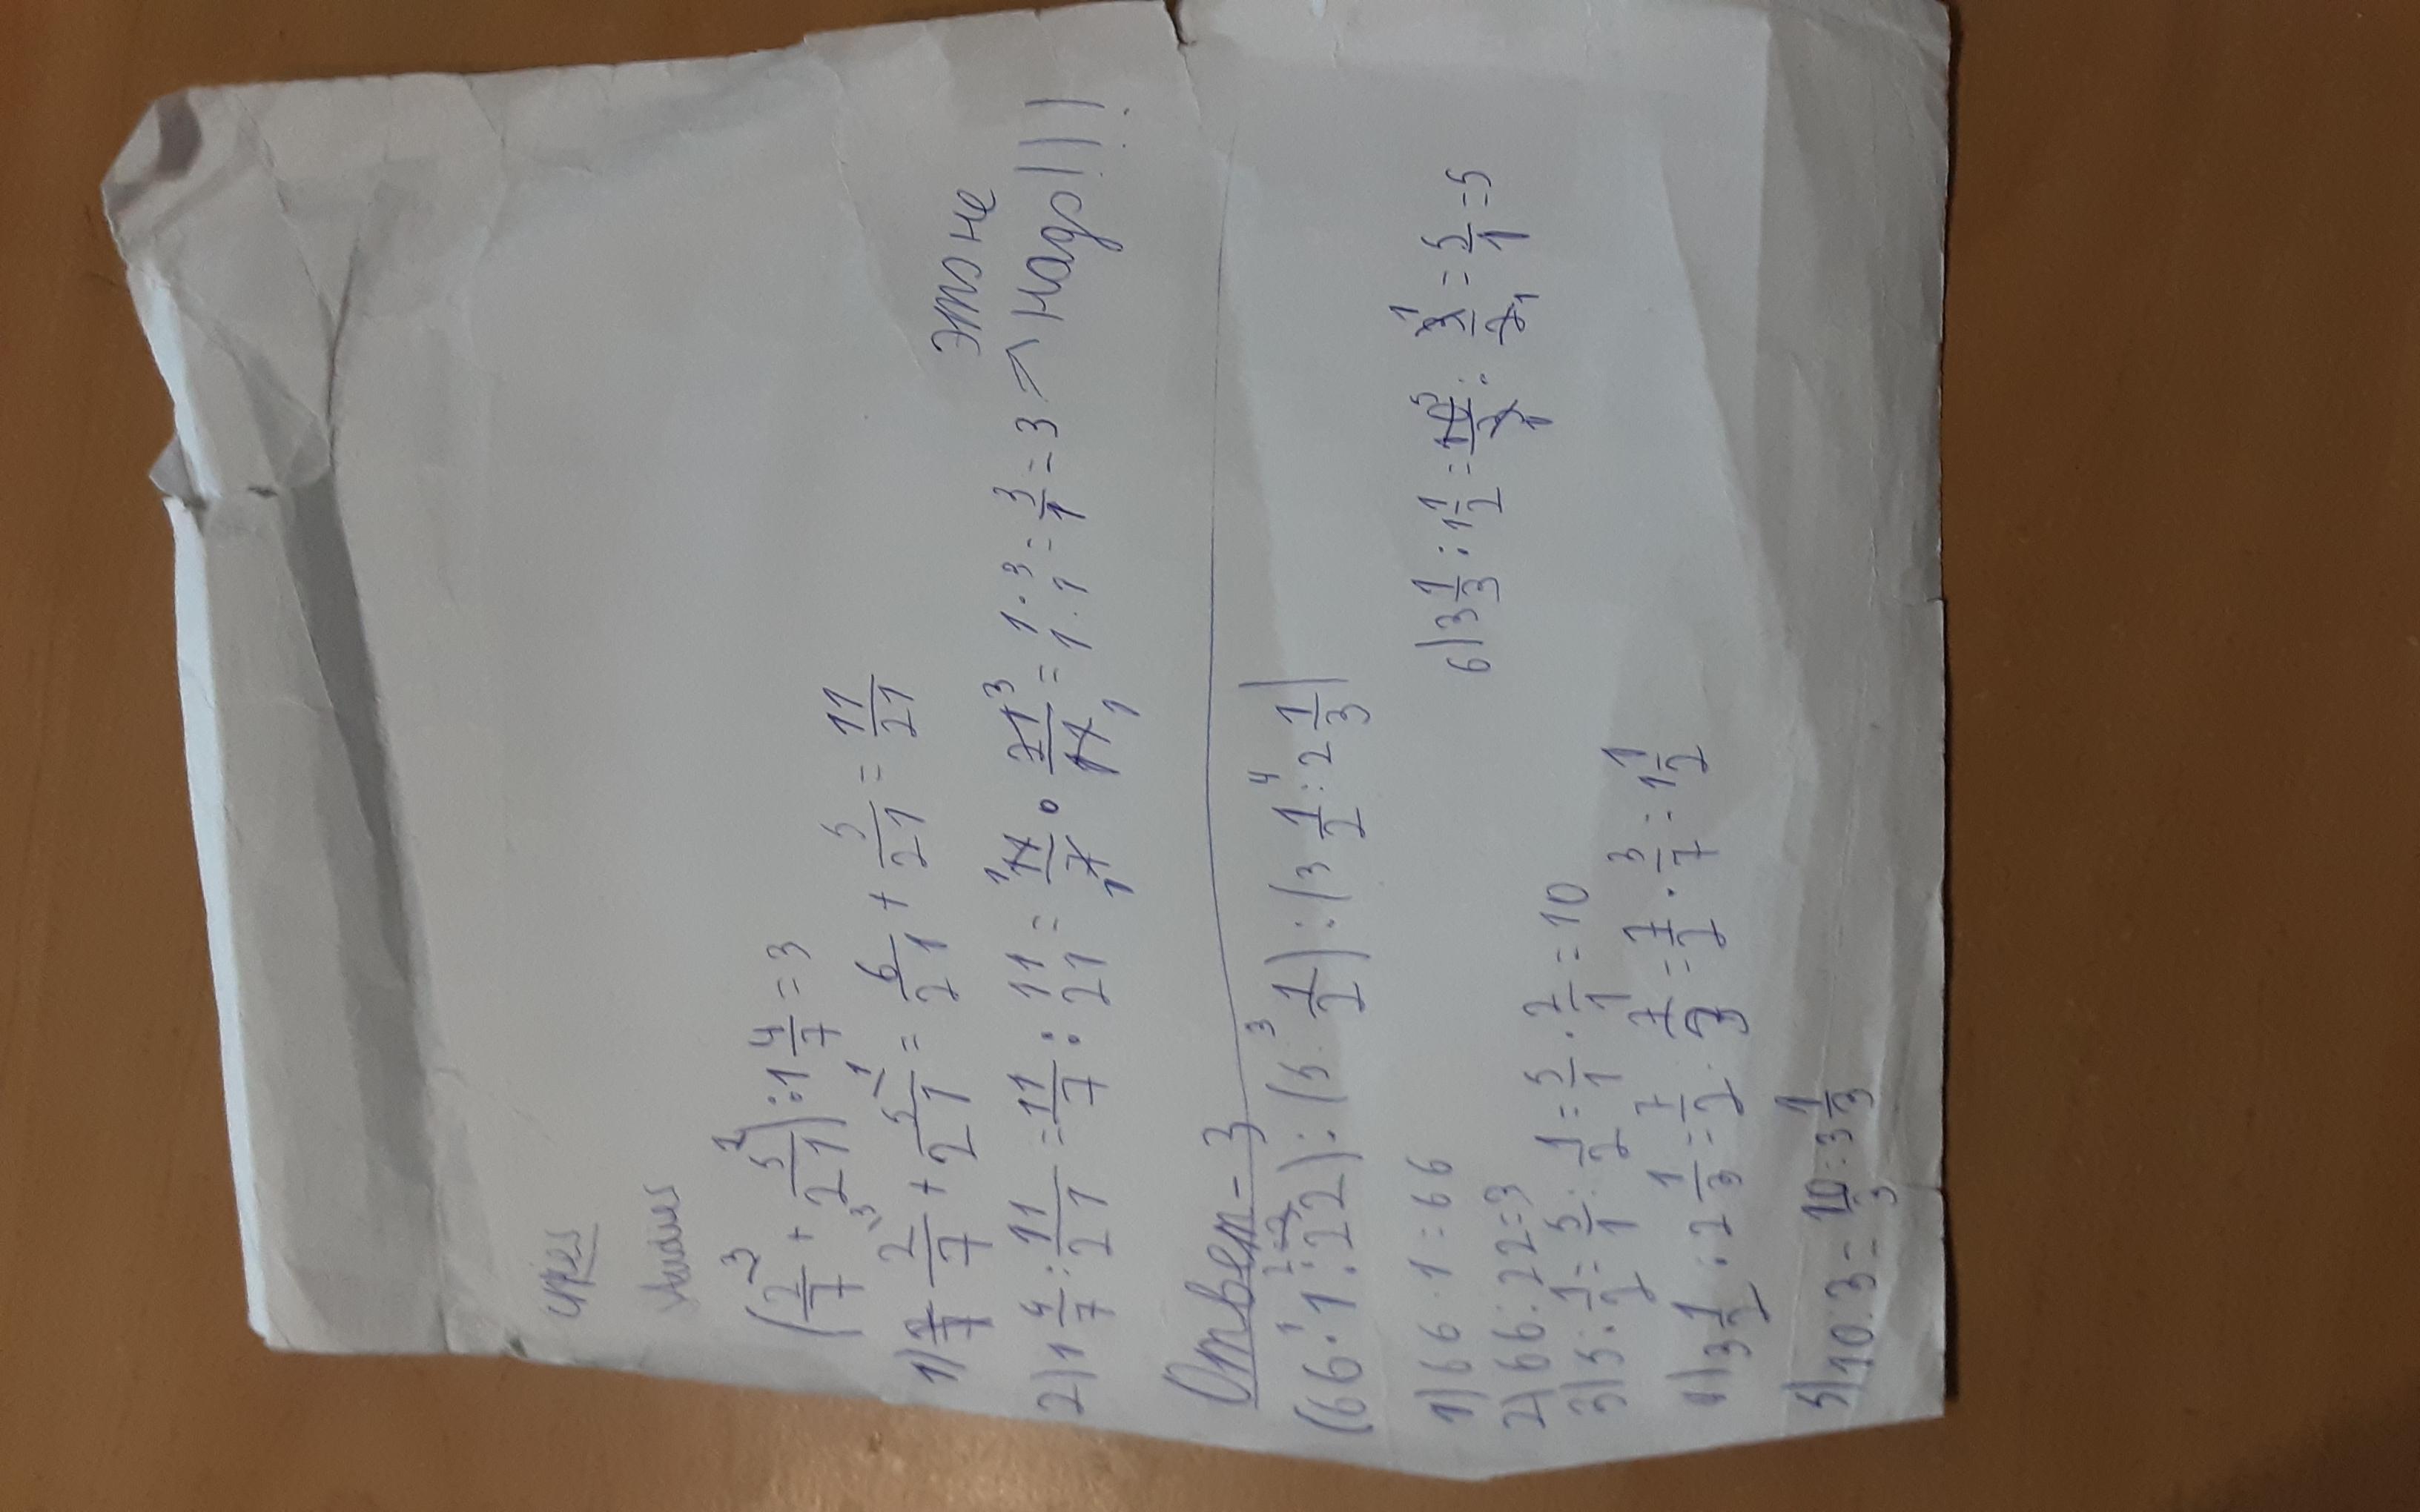 (2/7 ³ + 5/21 ¹) : 1 4/7 = 3
1) 2/7 ³ + 5/21 ¹ = 6/21 + 5/21 = 11/21
2) 1 4/7 : 11/21 = 11/7 : 11/21 = 11/7 · 21/11 = 1 · 3 / 1 · 1 = 3/1 = 3 → это не надо!!!
Ответ - 3
(66 · 1 : 22) : (5 : 1/2) : (3 1/2 : 2 1/3)
1) 66 · 1 = 66
2) 66 : 22 = 3
3) 5 : 1/2 = 5/1 : 1/2 = 5/1 · 2/1 = 10
4) 3 1/2 : 2 1/3 = 7/2 : 7/3 = 7/2 · 3/7 = 1 1/2
5) 10 : 3 = 10/3 = 3 1/3
6) 3 1/3 : 1 1/2 = 10/3 : 3/2 = 5/1 = 5